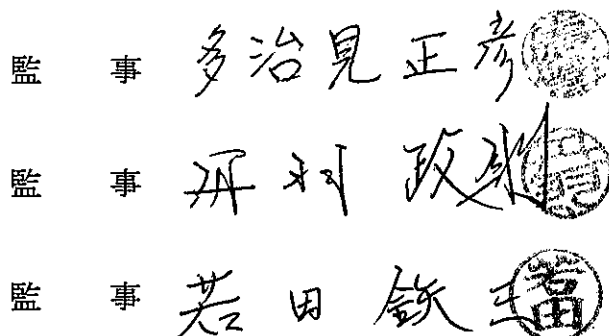 監 事 多治見正彦
監 事 利 政則
監 事 若田鉄